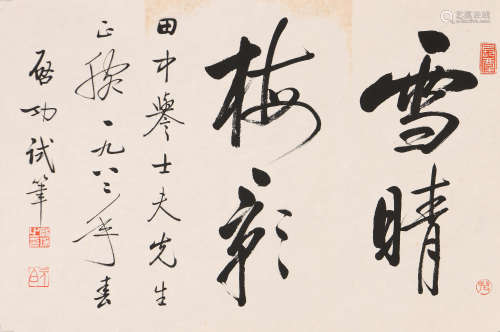 雪晴
梅影
田中譽士夫先生
正腕一九八二年春
啟功试筆